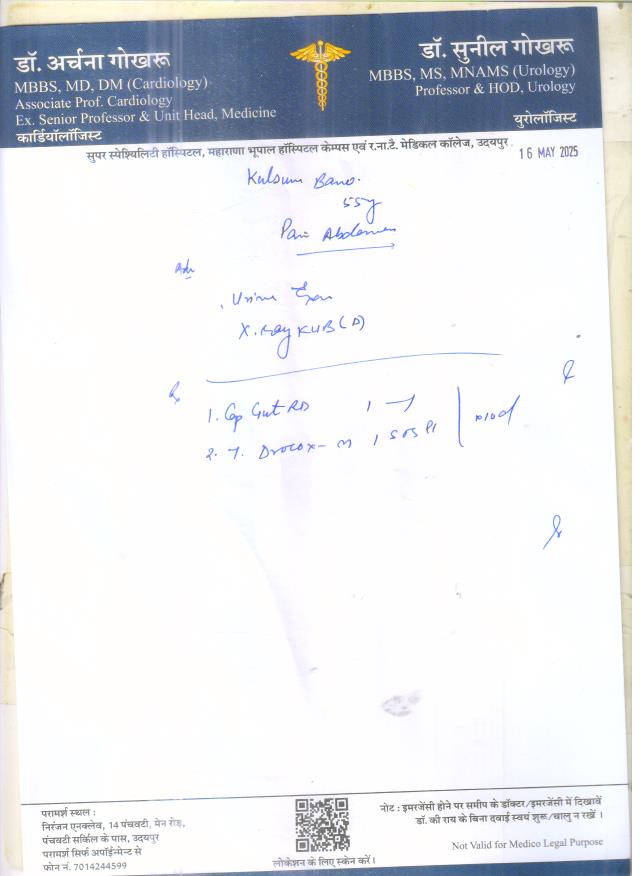 डॉ. अर्चना गोखरू
MBBS, MD, DM (Cardiology)
Associate Prof. Cardiology
Ex. Senior Professor & Unit Head, Medicine
कार्डियॉलॉजिस्ट
डॉ. सुनील गोखरू
MBBS, MS, MNAMS (Urology)
Professor & HOD, Urology
युरोलॉजिस्ट
सुपर स्पेश्यिलिटी हॉस्पिटल, महाराणा भूपाल हॉस्पिटल केम्पस एवं र.ना.टै. मेडिकल कॉलेज, उदयपुर
16 MAY 2025
Kulsum Bano.
55y
Pain Abdomen
Adv
Urine Exam
X.Ray KUB (D)
Rx
1. Cap Gut RD 1
2. T. Drocox-m 1 SOS x10d
परामर्श स्थल :
निरंजन एनक्लेव, 14 पंचवटी, मेन रोड़,
पंचवटी सर्किल के पास, उदयपुर
परामर्श सिर्फ अपॉईन्मेन्ट से
फोन नं. 7014244599
लोकेशन के लिए स्केन करें।
नोट : इमरजेंसी होने पर समीप के डॉक्टर/इमरजेंसी में दिखावें
डॉ. की राय के बिना दवाई स्वयं शुरू/चालु न रखें ।
Not Valid for Medico Legal Purpose